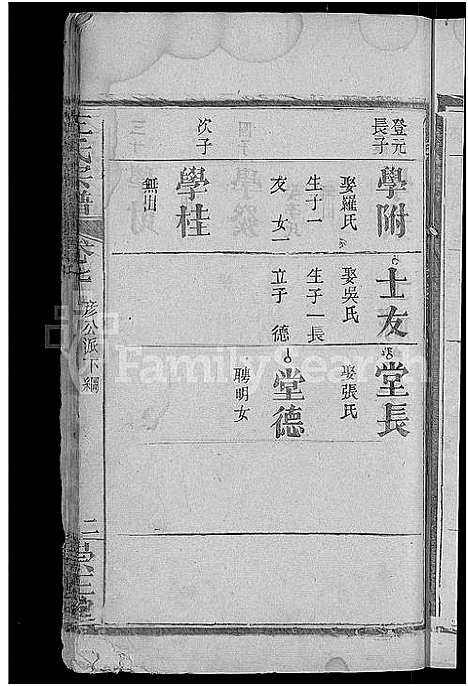 登元
長子
學附
娶羅氏
生子一
友 女一
次子
學桂
無出
士友
娶吳氏
生子一長
立子 德
堂長
娶張氏
堂德
聘明女
王氏宗譜
卷七
彦公派下編
FamilySearch